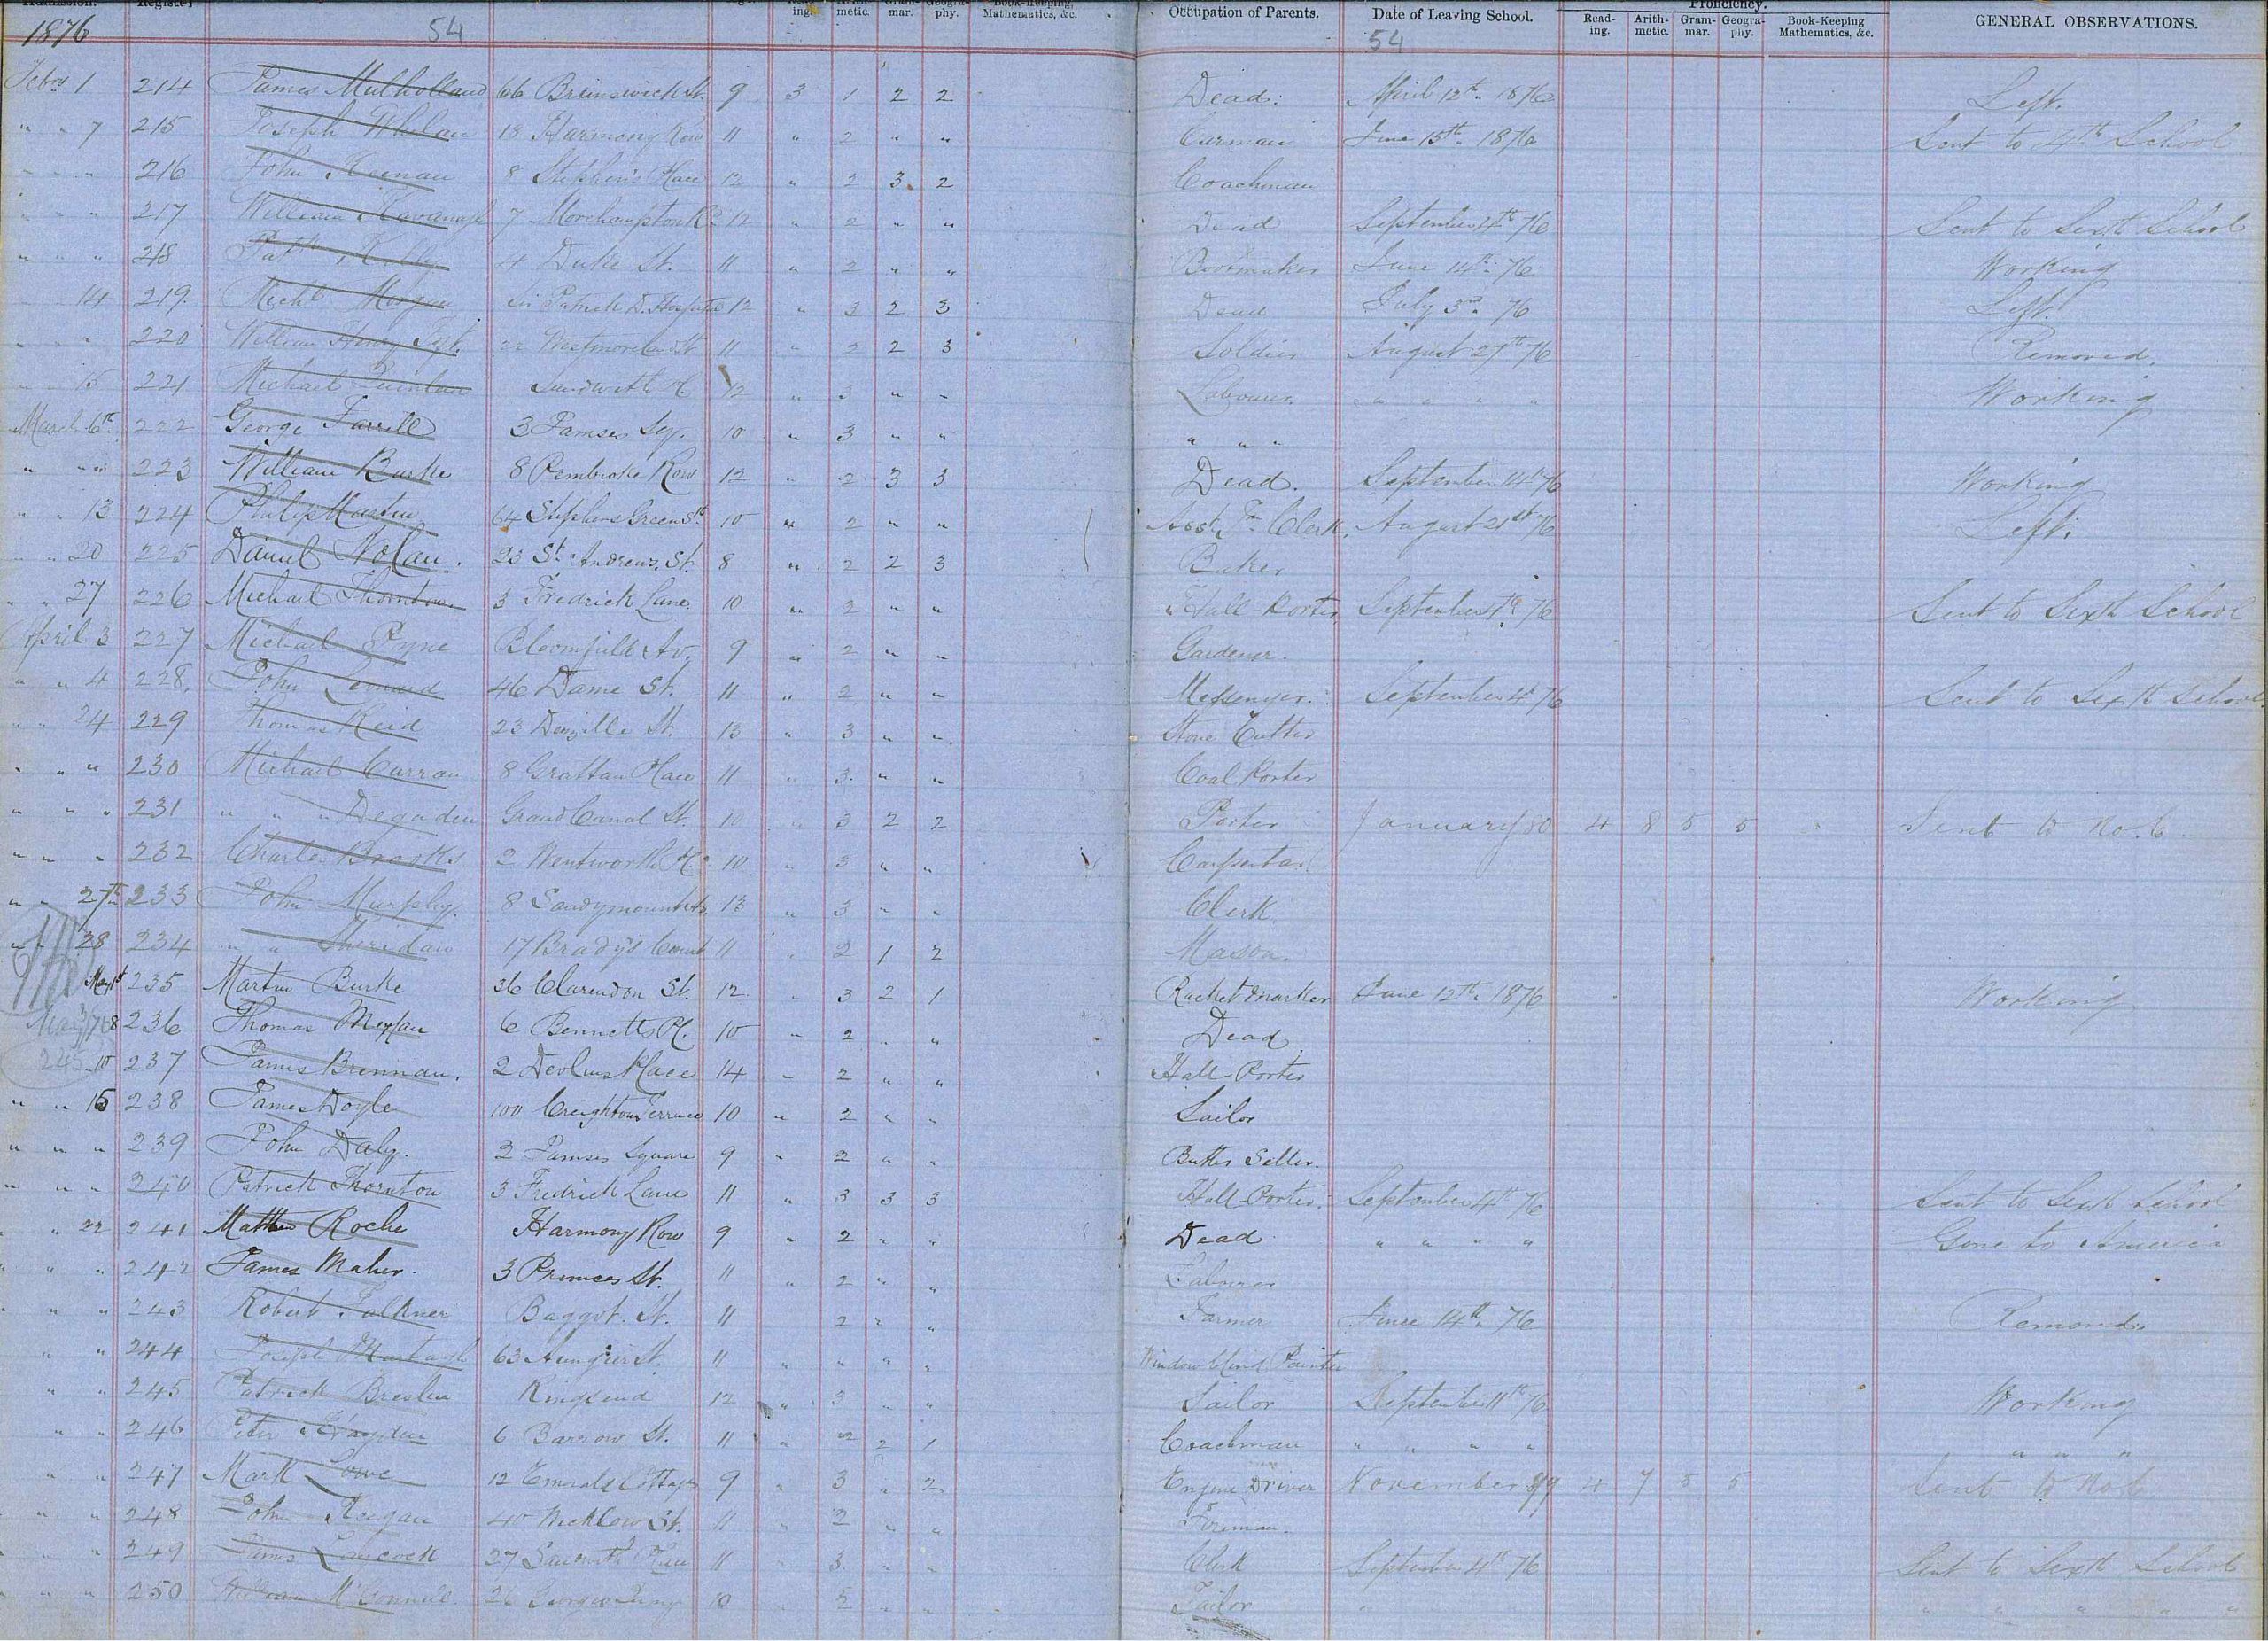 Admission. Register Age Read-ing. Arith-metic. Gram-mar. Geogra-phy. Book-Keeping, Mathematics, &c. Occupation of Parents. Date of Leaving School. Proficiency. Read-ing. Arith-metic. Gram-mar. Geogra-phy. Book-Keeping Mathematics, &c. GENERAL OBSERVATIONS.
1876 54 54
Feby 1 214 James Mulholland 66 Brunswick St. 9 3 1 2 2 Dead. April 12th 1876 Left.
" " 7 215 Joseph Whelan 18 Harmony Row 11 " 2 " " Carman June 15th 1876 Sent to 4th School
" " " 216 John Keenan 8 Stephen's Place 12 " 2 3 2 Coachman
" " " 217 William Kavanagh 7 Morehampton Rd 12 " 2 " " Dead September 4th 76 Sent to Sixth School
" " " 218 Patk Kelly 4 Duke St. 11 " 2 " " Bootmaker June 14th 76 Working
" " 14 219 Michl Morgan Sir Patrick D. Hospital 12 " 3 2 3 Dead July 3rd 76 Left.
" " " 220 William Henry 22 Westmoreland St 11 " 2 2 3 Soldier August 27th 76 Removed.
" " 15 221 Michael Quinlan Sandwith Pl 12 " 3 " " Labourer " " " " Working
March 6th 222 George Farrell 3 Jameses Sq. 10 " 3 " " " " "
" " " 223 William Burke 8 Pembroke Row 12 " 2 3 3 Dead. September 14th 76 Working
" " 13 224 Philip Martin 64 Stephens Green Sth 10 " 2 " " Asst. Clerk. August 21st 76 Left.
" " 20 225 Daniel Nolan. 23 St. Andrews St. 8 " 2 2 3 Baker
" " 27 226 Michael Thornton 3 Fredrick Lane 10 " 2 " " Hall-Porter September 4th 76 Sent to Sixth School
April 3 227 Michael Pyne Bloomfield Av. 9 " 2 " " Gardener.
" " 4 228 John Leonard 46 Dame St. 11 " 2 " " Messenger. September 4th 76 Sent to Sixth School
" " 24 229 Thomas Reid 23 Denzille St. 13 " 3 " " Stone Cutter
" " " 230 Michael Curran 8 Grattan Place 11 " 3 " " Coal Porter
" " " 231 " " Degaden Grand Canal St. 10 " 3 2 2 Porter January 80 4 8 5 5 Sent to No. 6.
" " " 232 Charles Brooks 2 Wentworth Pl. 10 " 3 " " Carpenter
" " 27th 233 John Murphy. 8 Sandymount Av. 13 " 3 " " Clerk.
" " 28 234 " " Sheridan 17 Brady's Court 11 " 2 1 2 Mason.
May 1st 235 Martin Burke 36 Clarendon St. 12 " 3 2 1 Racket Marker June 12th 1876 Working
8 236 Thomas 6 Bennetts Pl. 10 " 2 " " Dead
10 237 James Brennan. 2 Devlins Place 14 " 2 " " Hall-Porter
" " 15 238 James Doyle 100 Creighton Terrace 10 " 2 " " Sailor
" " " 239 John Daly. 2 Jamses Square 9 " 2 " " Butter Seller.
" " " 240 Patrick Thornton 3 Fredrick Lane 11 " 3 3 3 Hall-Porter. September 4th 76 Sent to Sixth School
" " 22 241 Matthew Roche Harmony Row 9 " 2 " " Dead " " " " Gone to America
" " " 242 James Maher. 3 Princes St. 11 " 2 " " Labourer
" " " 243 Robert Falkner Baggot St. 11 2 " " Farmer June 14th 76 Removed.
" " 244 Joseph Murtagh 63 Aungier St. 11 " " " " Window blind Painter
" " 245 Patrick Breslin Ringsend 12 " 3 " " Sailor September 11th 76 Working
" " 246 Peter Hayden 6 Barrow St. 11 " 2 2 1 Coachman " " " " " " "
" " 247 Mark Lowe 12 Emerald Cottages 9 " 3 " 2 Engine Driver November 79 4 7 5 5 Sent to No 6
" " " 248 John Keegan 45 Wicklow St. 11 " 2 " " Foreman.
" " " 249 James Laycock 27 Sandwith Place 11 3 " " Clerk September 4th 76 Sent to Sixth School
" " " 250 William McConnell 26 Georges Quay 10 2 " " Tailor " " " " "